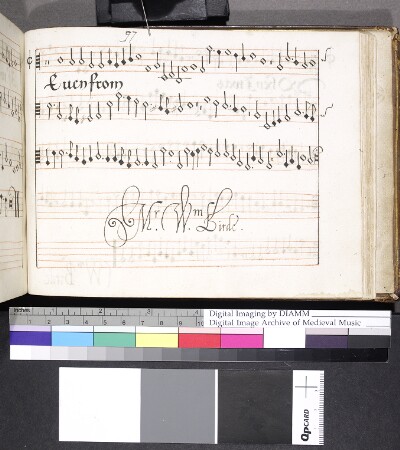 97
Euen from
Mr. Wm Birde.
inches 1 2 3 4
1 2 3 4 5 6 7 8 9 10
Digital Imaging by DIAMM
Digital Image Archive of Medieval Music
QPCARD